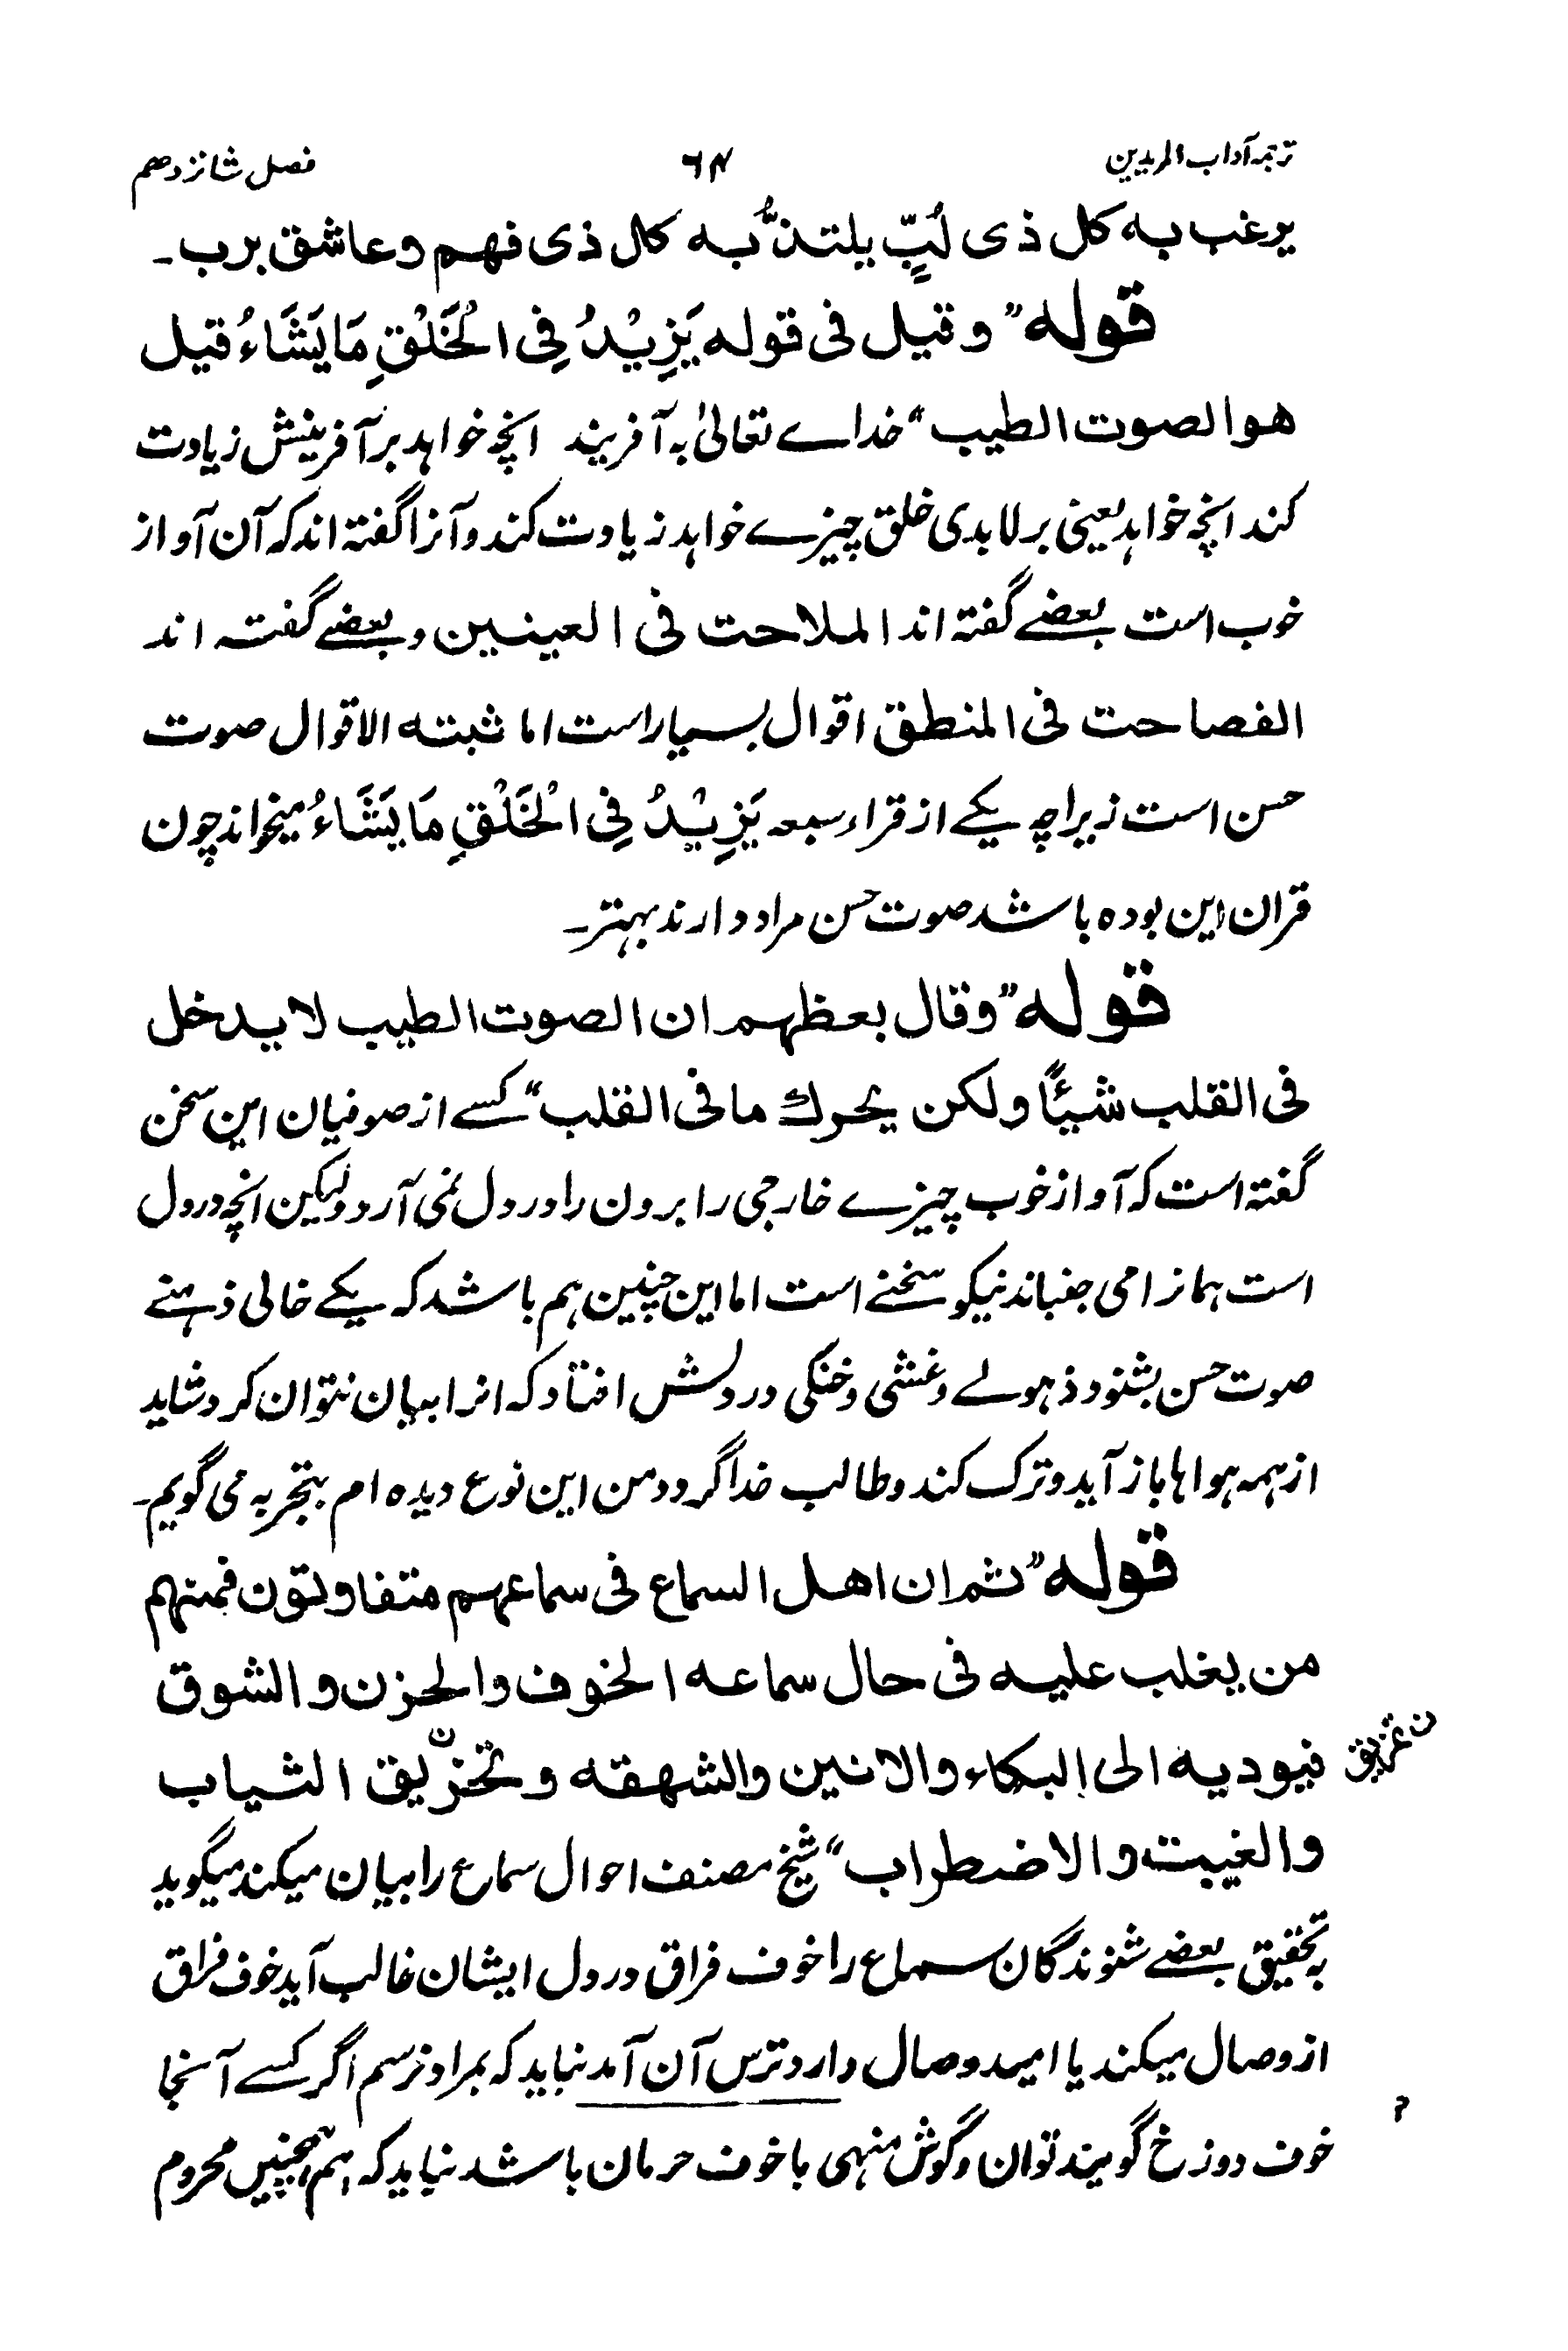 ترجمہ آداب المریدین ۶۴ فصل شانزدھم
یرغب بہ کل ذی لُبٍّ یلتذُّ بہ کل ذی فھم و عاشق برب۔
قولہ ”و قیل فی قولہ یَزِیْدُ فِی الْخَلْقِ مَا یَشَاءُ قیل
ھوا لصوت الطیب“ خداے تعالیٰ بہ آفریند انچہ خواہد برآفرینش زیادت
کند انچہ خواہد یعنی بر لابدی خلق چیزے خواہد زیادت کند و آنرا گفتہ اند کہ آن آواز
خوب است بعضے گفتہ اند الملاحت فی العینین و بعضے گفتہ اند
الفصاحت فی المنطق اقوال بسیار است اما ثبتہ الاقوال صوت
حسن است زیراچہ یکے از قراء سبعہ یَزِیْدُ فِی الْخَلْقِ مَا یَشَاءُ میخواند چون
قران این بودہ باشد صوت حسن مراد دارند بہتر۔
قولہ ”وقال بعظھم ان الصوت الطیب لا یدخل
فی القلب شیئًا ولکن یحرك ما فی القلب“ کسے از صوفیان این سخن
گفتہ است کہ آواز خوب چیزے خارجی را برون را در دل نمی آرد ولیکن انچہ در دل
است ہمانرا می جنباند نیکو سخنے است اما این چنین ہم باشد کہ یکے خالی ذہنے
صوت حسن بشنود ذہولے و غشی و خنکی در دلش افتاد کہ انرا بیان نتوان کرد شاید
از ہمہ ہواہا باز آید و ترک کند و طالب خدا گردد من این نوع دیدہ ام بتجربہ می گویم۔
قولہ ”ثم ان اھل السماع فی سماعھم متفاوتون فمنھم
من یغلب علیہ فی حال سماعہ الخوف والحزن و الشوق
فیودیہ الی البکاء والانین والشھقہ و تخزیق الثیاب
ن تمزیق
والغیبت والاضطراب“ شیخ مصنف احوال سماع را بیان میکند میگوید
بہ تحقیق بعضے شنوندگان سماع را خوف فراق در دل ایشان غالب آید خوف فراق
از وصال میکند یا امید وصال دارد ترس آن آمد نباید کہ بمراد نرسم اگر کسے آنجا
؟
خوف دوزخ گویند توان و گوش منہی باخوف حرمان باشد نباید کہ ہم ہمچنیں محروم